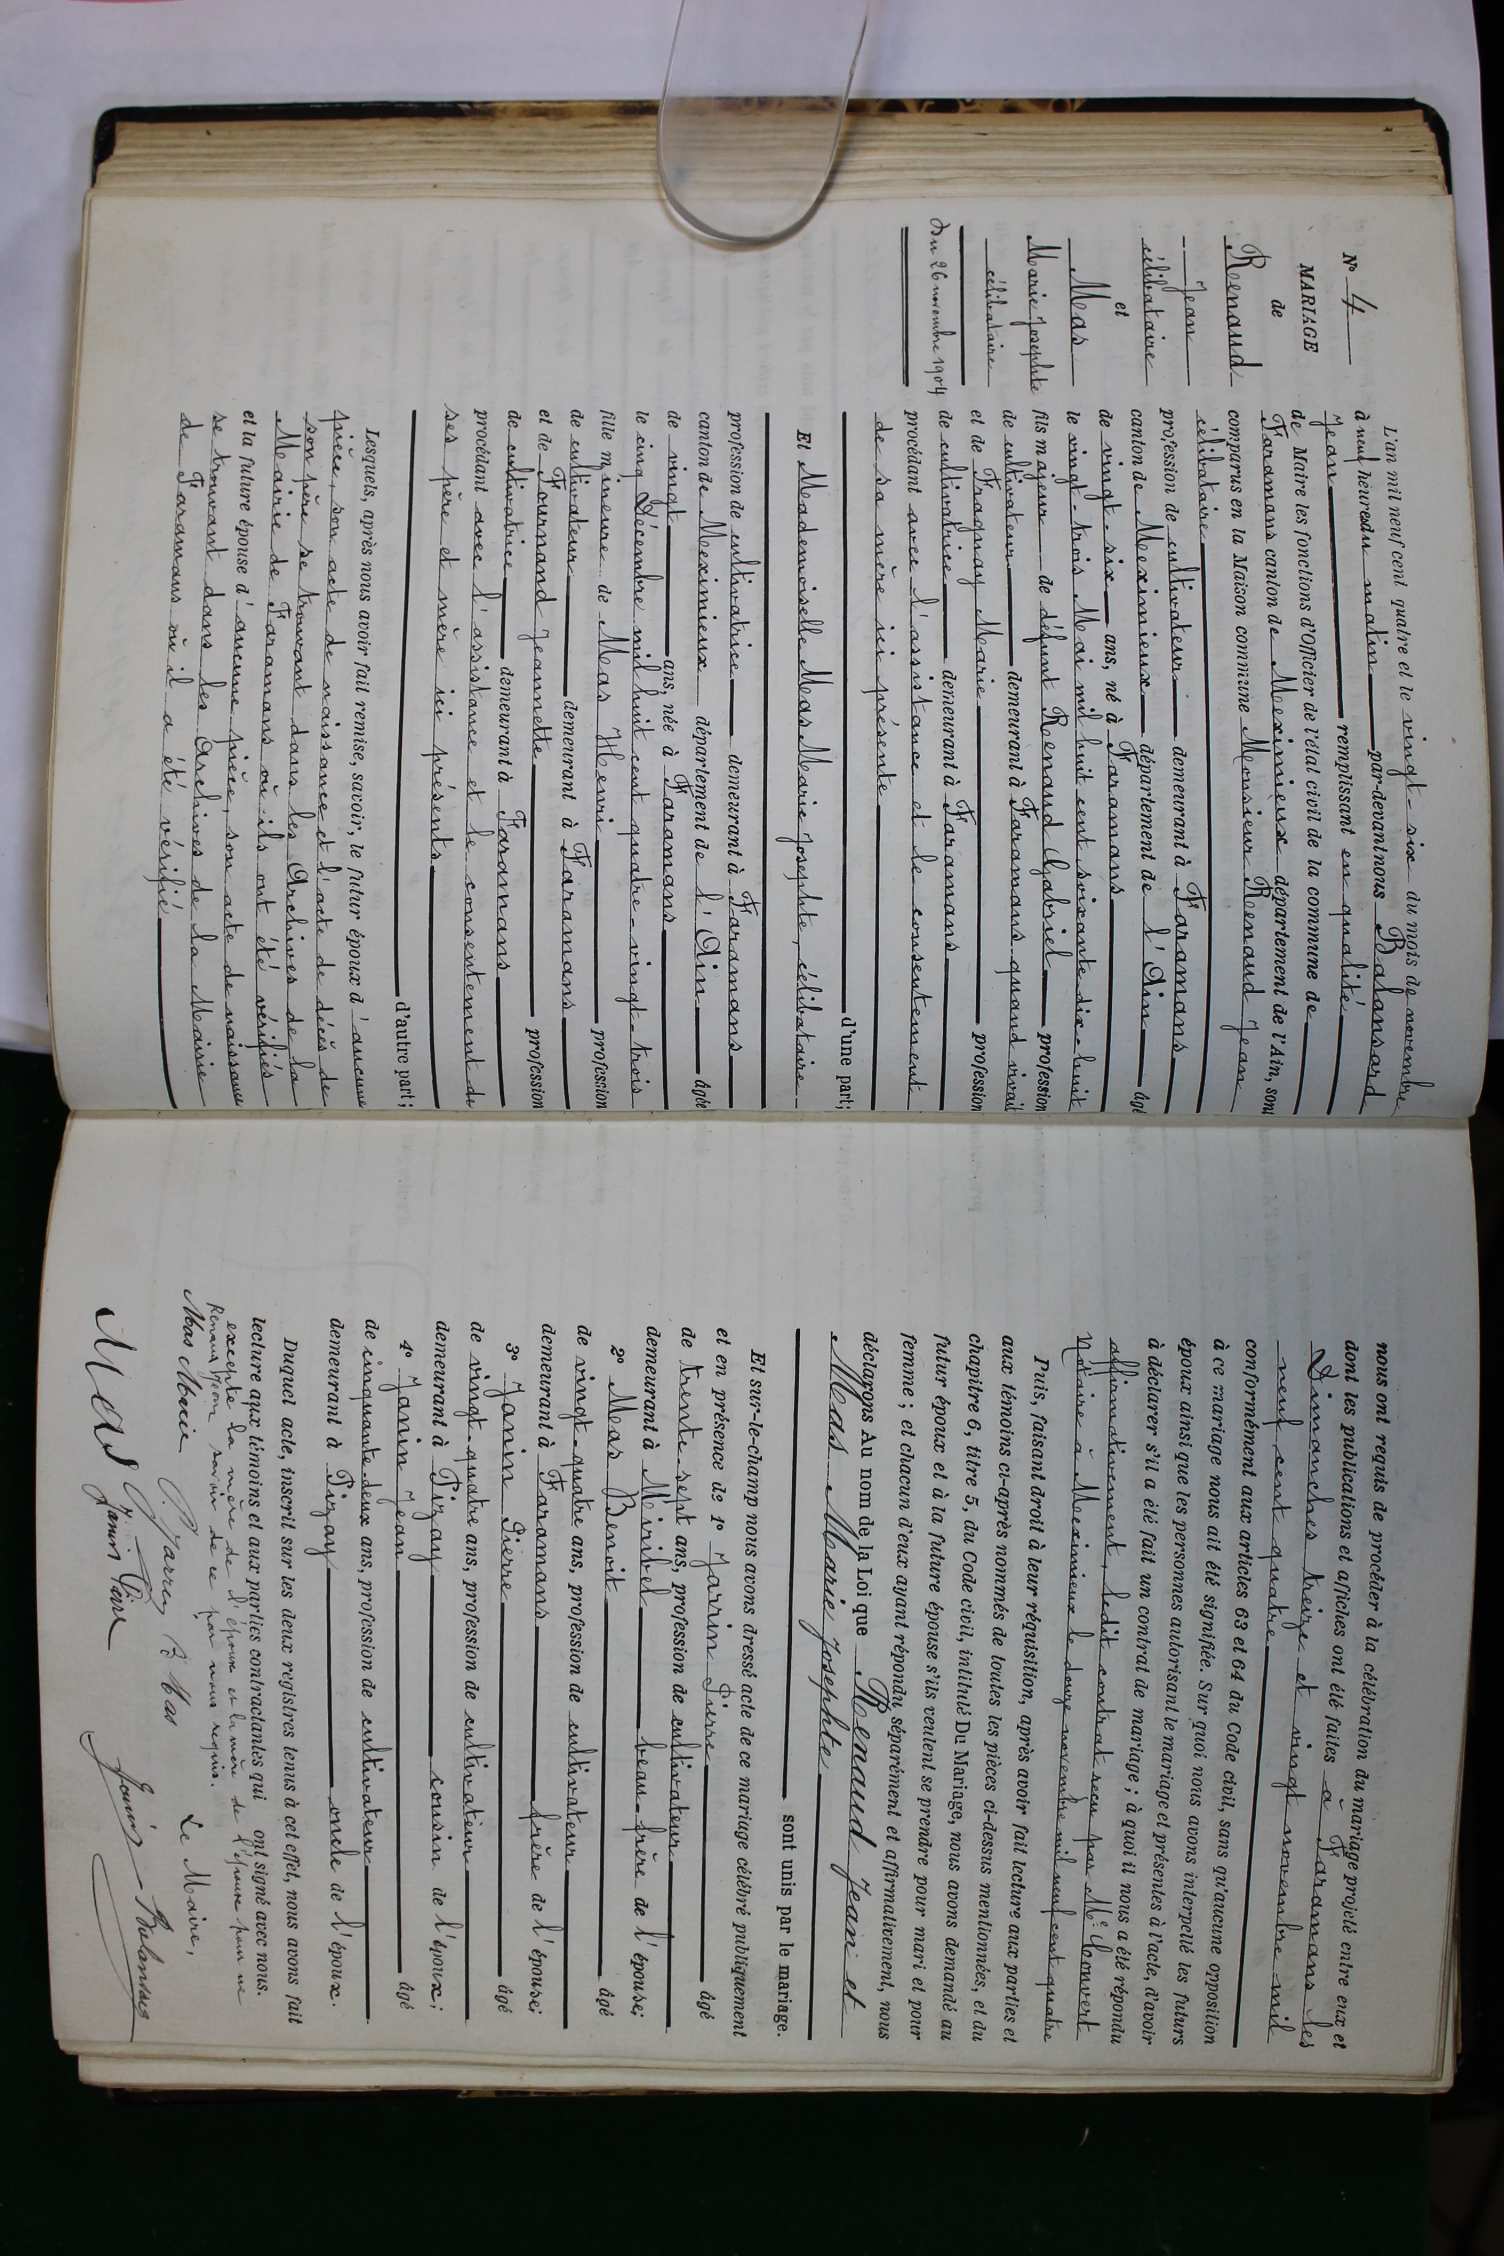 N° 4
MARIAGE
de
Renaud
Jean
célibataire
et
Mas
Marie Josephte
célibataire
Du 26 novembre 1904
L'an mil neuf cent quatre et le vingt-six du mois de novembre
à neuf heures du matin par-devant nous Balansard
Jean remplissant en qualité
de Maire les fonctions d'Officier de l'état civil de la commune de
Faramans canton de Meximieux département de l'Ain, sont
comparus en la Maison commune Monsieur Renaud Jean
célibataire
profession de cultivateur demeurant à Faramans
canton de Meximieux département de l'Ain âgé
de vingt-six ans, né à Faramans
le vingt-trois Mai mil huit cent soixante dix-huit
fils majeur de défunt Renaud Gabriel profession
de cultivateur demeurant à Faramans quand vivait
et de Fragnay Marie profession
de cultivatrice demeurant à Faramans
procédant avec l'assistance et le consentement
de sa mère ici présente
d'une part;
Et Mademoiselle Mas Marie Josephte, célibataire
profession de cultivatrice demeurant à Faramans
canton de Meximieux département de l'Ain âgée
de vingt ans, née à Faramans
le cinq Décembre mil huit cent quatre-vingt-trois
fille mineure de Mas Henri profession
de cultivateur demeurant à Faramans
et de Fournand Jeannette profession
de cultivatrice demeurant à Faramans
procédant avec l'assistance et le consentement de
ses père et mère ici présents
d'autre part;
Lesquels, après nous avoir fait remise, savoir, le futur époux d'aucune
pièce, son acte de naissance et l'acte de décès de
son père se trouvant dans les Archives de la
Mairie de Faramans où ils ont été vérifiés
et la future épouse d'aucune pièce, son acte de naissance
se trouvant dans les Archives de la Mairie
de Faramans où il a été vérifié
nous ont requis de procéder à la célébration du mariage projeté entre eux et
dont les publications et affiches ont été faites à Faramans les
Dimanches treize et vingt novembre mil
neuf cent quatre
conformément aux articles 63 et 64 du Code civil, sans qu'aucune opposition
à ce mariage nous ait été signifiée. Sur quoi nous avons interpellé les futurs
époux ainsi que les personnes autorisant le mariage et présentes à l'acte, d'avoir
à déclarer s'il a été fait un contrat de mariage; à quoi il nous a été répondu
affirmativement, ledit contrat reçu par Me Convert
Notaire à Meximieux le douze novembre mil neuf cent quatre
Puis, faisant droit à leur réquisition, après avoir fait lecture aux parties et
aux témoins ci-après nommés de toutes les pièces ci-dessus mentionnées, et du
chapitre 6, titre 5, du Code civil, intitulé Du Mariage, nous avons demandé au
futur époux et à la future épouse s'ils veulent se prendre pour mari et pour
femme; et chacun d'eux ayant répondu séparément et affirmativement, nous
déclarons Au nom de la Loi que Renaud Jean et
Mas Marie Josephte
sont unis par le mariage.
Et sur-le-champ nous avons dressé acte de ce mariage célébré publiquement
et en présence de 1° Jarrin Pierre âgé
de trente-sept ans, profession de cultivateur
demeurant à Miribel beau-frère de l'épouse;
2° Mas Benoit âgé
de vingt-quatre ans, profession de cultivateur
demeurant à Faramans frère de l'épouse;
3° Janin Pierre âgé
de vingt-quatre ans, profession de cultivateur
demeurant à Pizay cousin de l'époux;
4° Janin Jean âgé
de cinquante-deux ans, profession de cultivateur
demeurant à Pizay oncle de l'époux.
Duquel acte, inscrit sur les deux registres tenus à cet effet, nous avons fait
lecture aux témoins et aux parties contractantes qui ont signé avec nous.
excepté la mère de l'époux et la mère de l'épouse pour ne
savoir de ce par nous requis.
Renaud Jean
Le Maire,
Mas Marie P Jarrin B Mas
Janin Balansard
Mas Janin Pierre